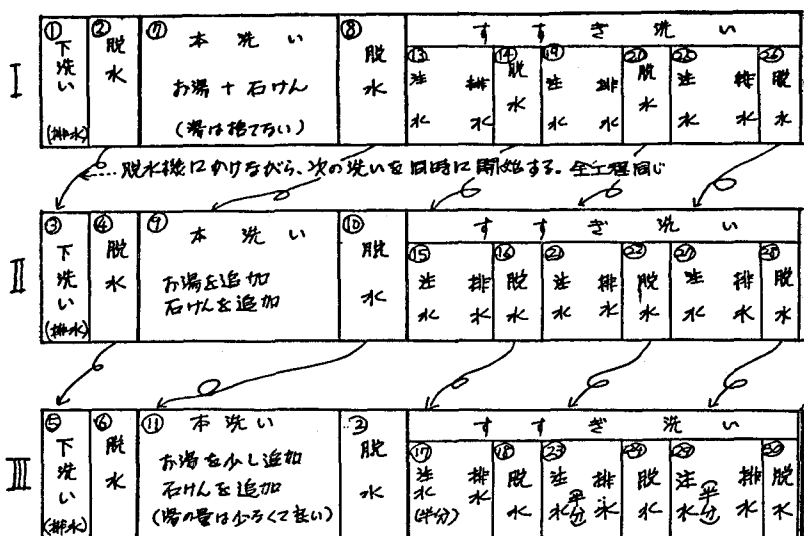 I
① 下洗い (排水)
② 脱水
⑦ 本洗い
お湯 + 石けん
(湯は捨てない)
⑧ 脱水
すすぎ洗い
⑬ 注水 排水
⑭ 脱水
⑲ 注水 排水
⑳ 脱水
㉕ 注水 排水
㉖ 脱水
脱水機にかけながら、次の洗いを同時に開始する。全工程同じ
II
③ 下洗い (排水)
④ 脱水
⑨ 本洗い
お湯を追加
石けんを追加
⑩ 脱水
すすぎ洗い
⑮ 注水 排水
⑯ 脱水
㉑ 注水 排水
㉒ 脱水
㉗ 注水 排水
㉘ 脱水
III
⑤ 下洗い (排水)
⑥ 脱水
⑪ 本洗い
お湯を少し追加
石けんを追加
(湯の量は少なくて良い)
脱水
すすぎ洗い
⑰ 注水 (半分) 排水
⑱ 脱水
㉓ 注水 (半分) 排水
㉔ 脱水
㉙ 注水 (半分) 排水
㉚ 脱水